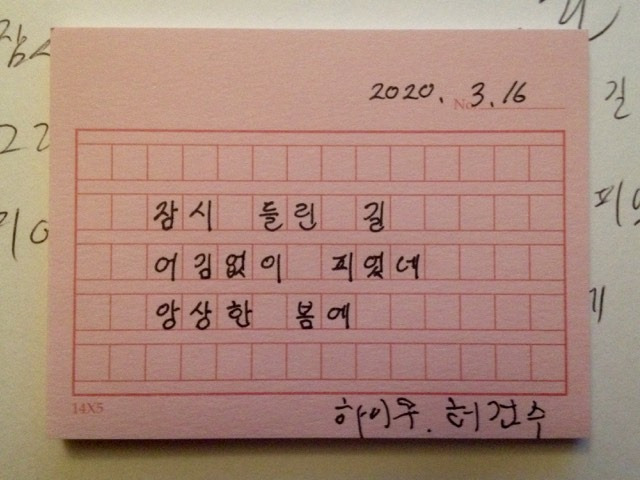 2020. 3. 16
No
잠시 들린 길
어김없이 피었네
앙상한 봄에
14X5
하이쿠. 허건수